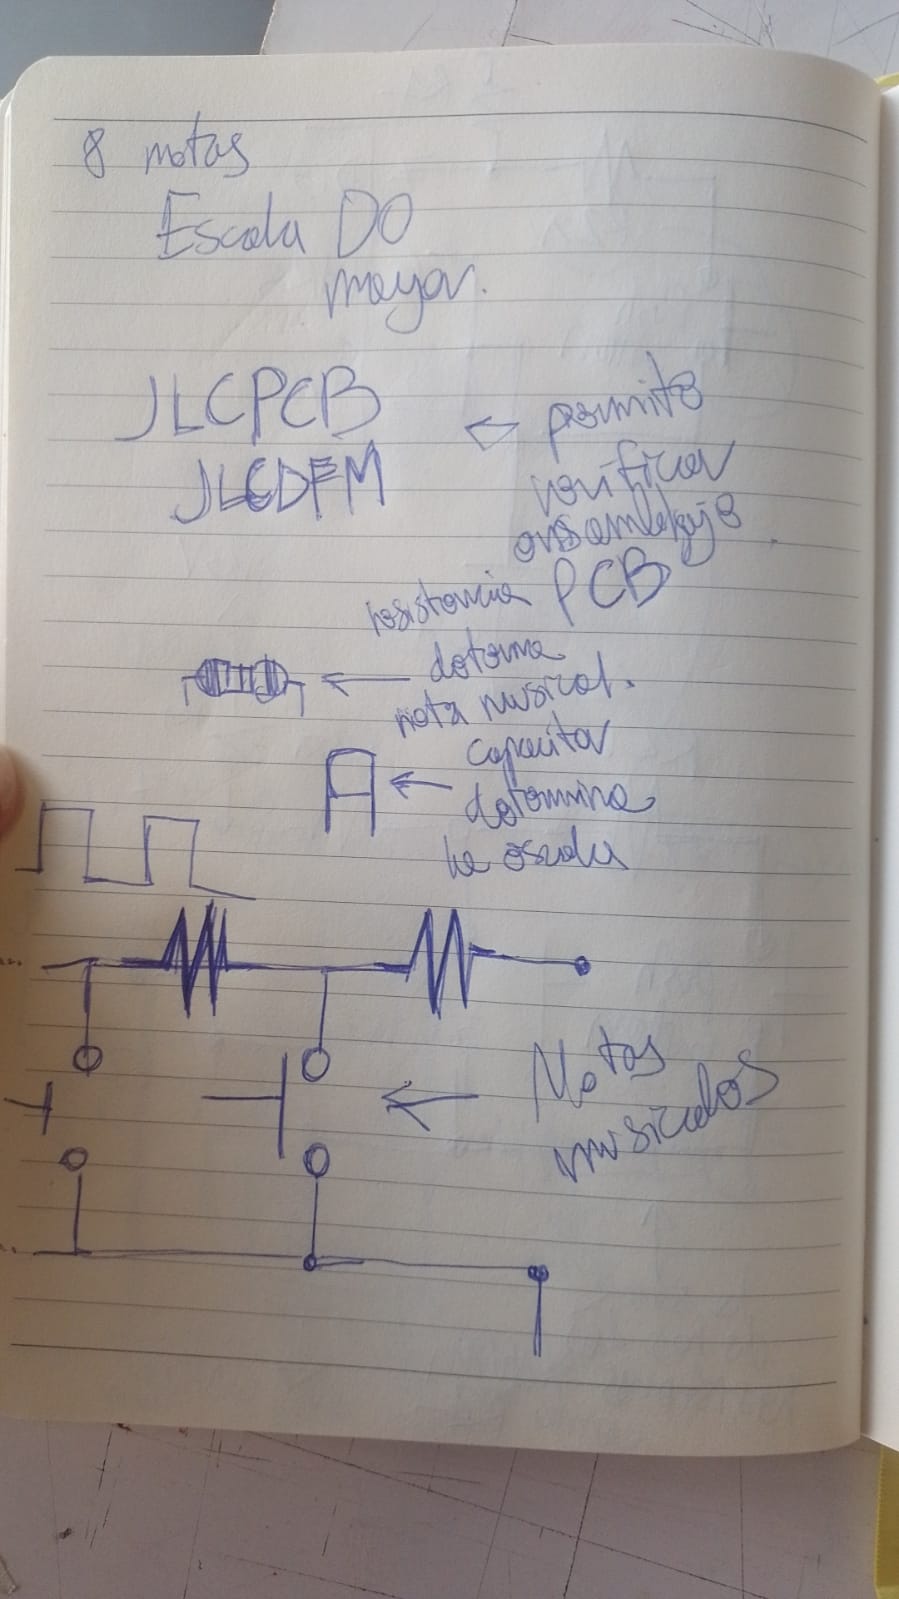 8 notas
Escala DO
mayor.
JLCPCB
JLCDFM
← permite
verificar
ensamblaje
PCB
resistencia
← detorma
nota musical.
capacitor
← determina
la escala
← Notas
musicales